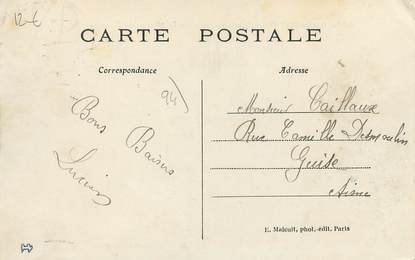 12€
CARTE POSTALE
Correspondance
Adresse
94)
Bons
Baisers
Lucien
Monsieur Caillaux
Rue Camille Desmoulin
Guise
Aisne
E. Malcuit, phot.-edit. Paris